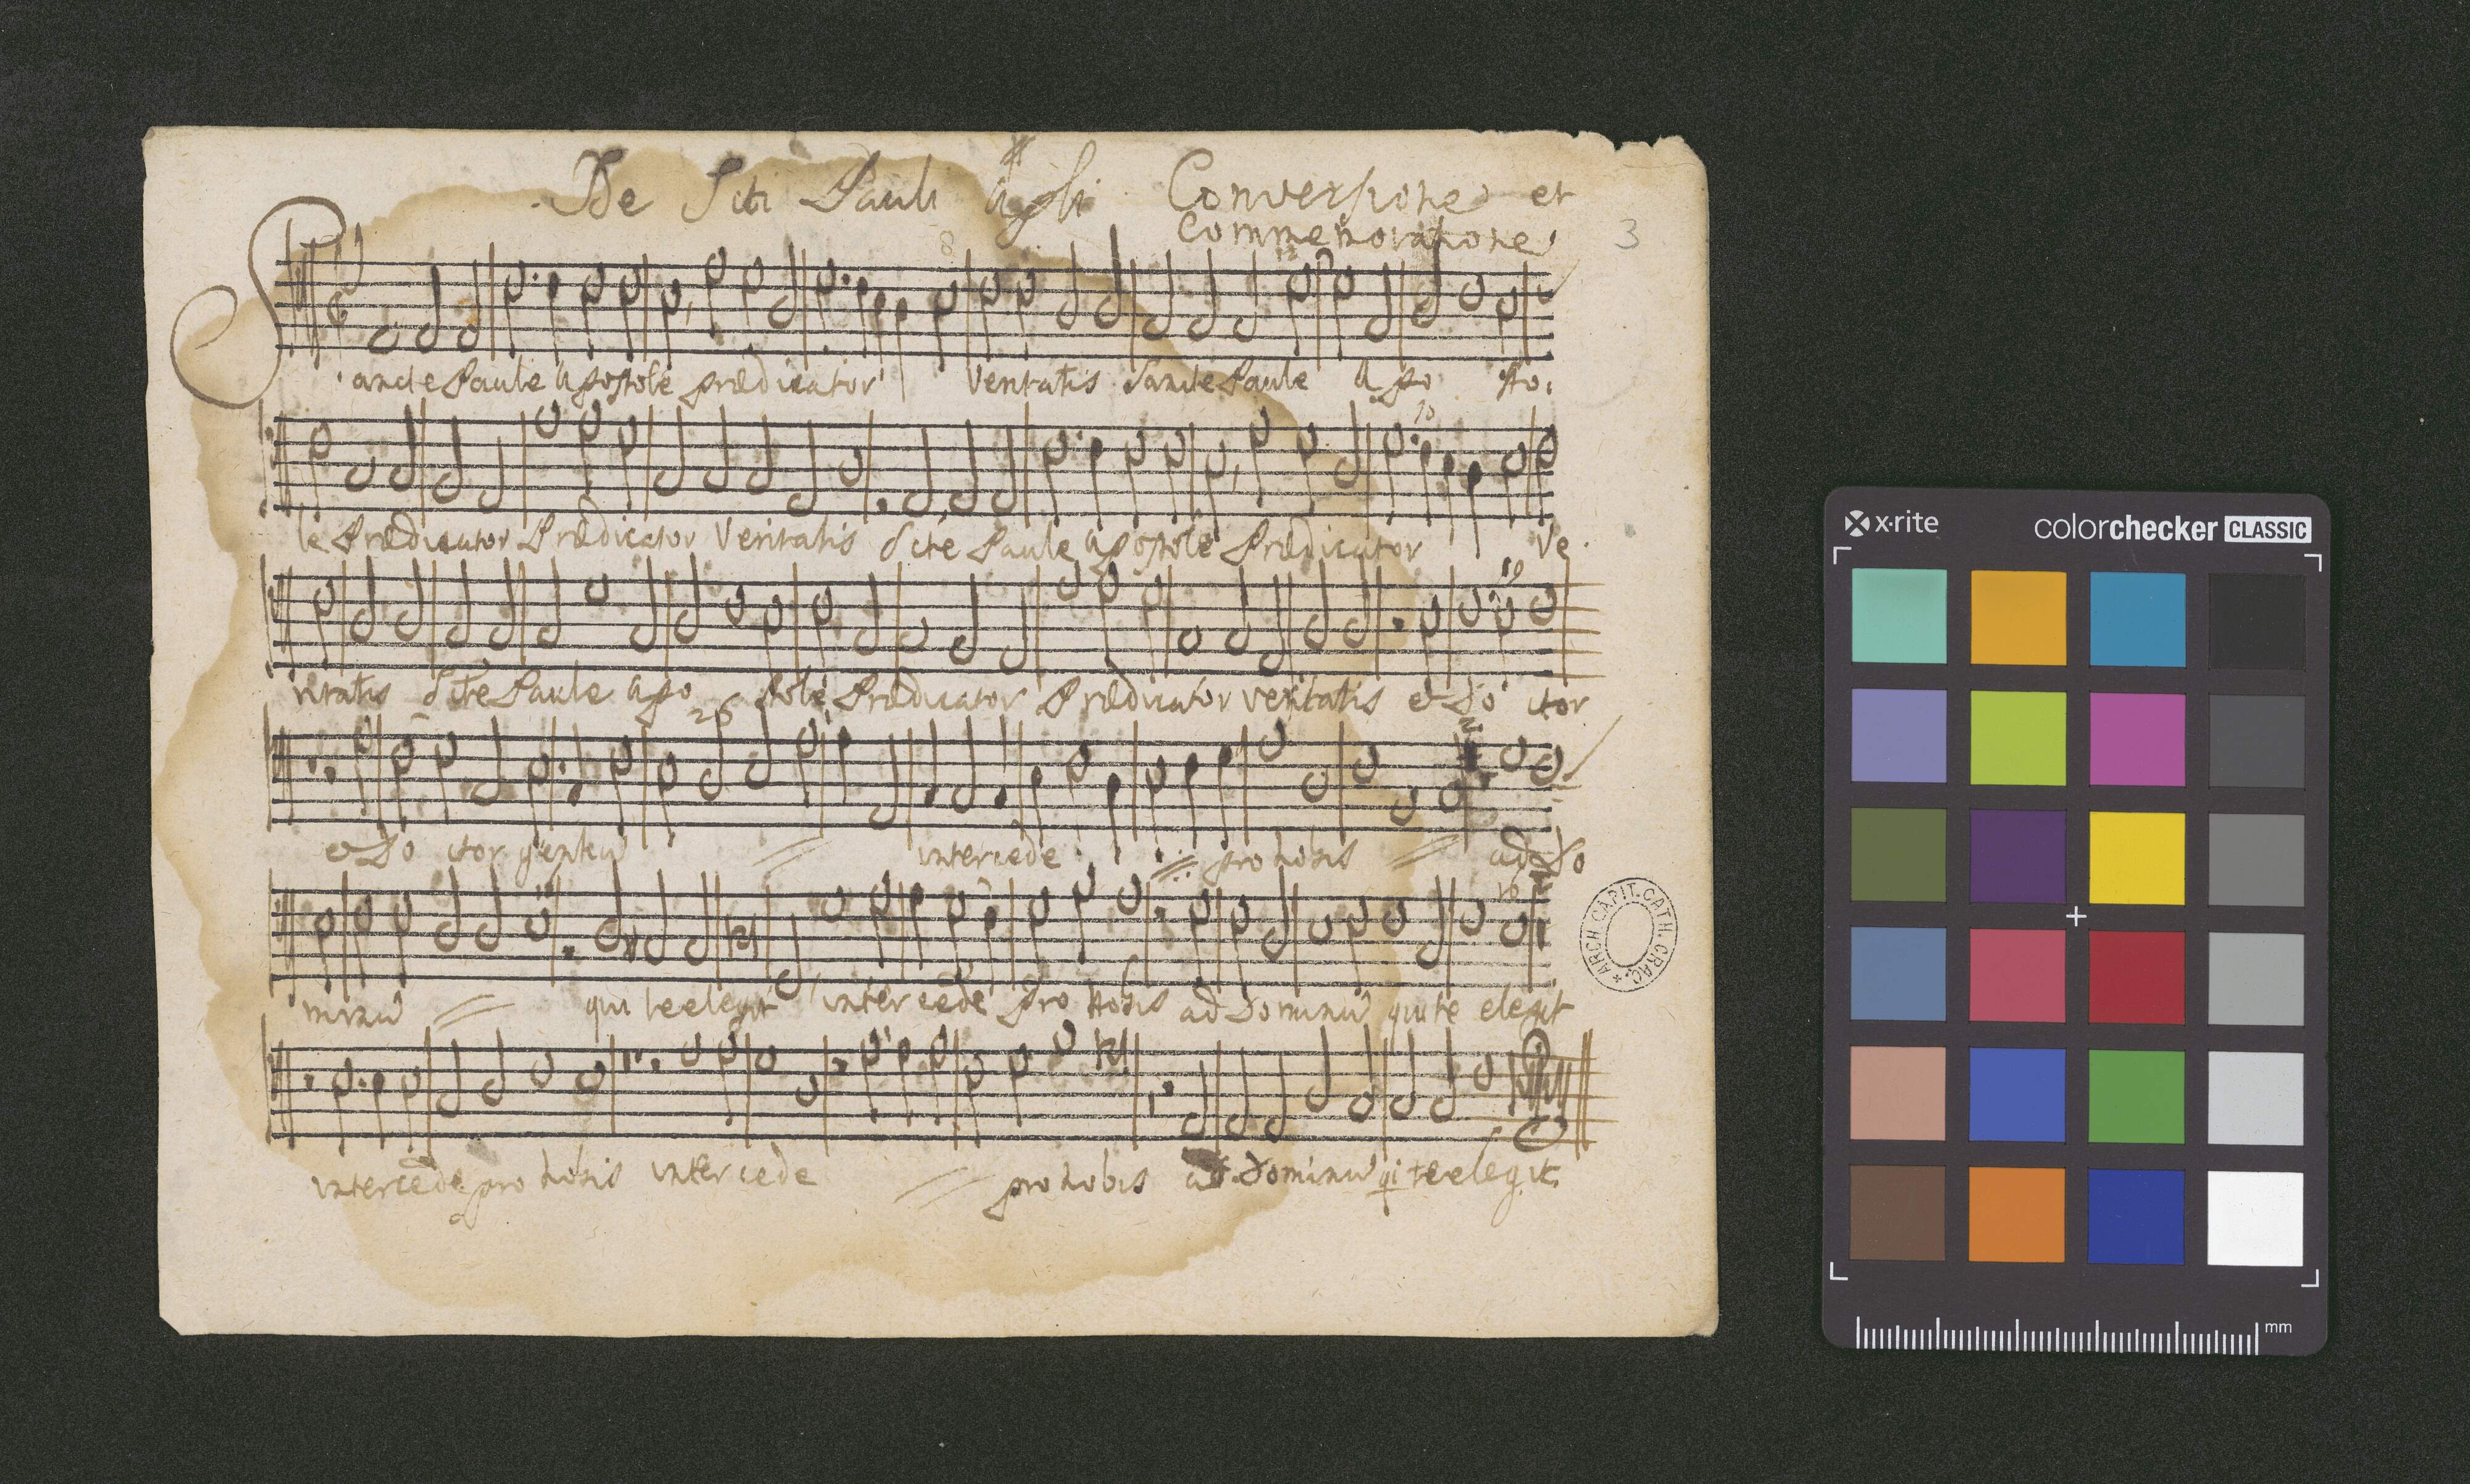 De Scti Pauli Apli Conversione et
Commemoratione
3
8
Sancte Paule Apostole prædicator veritatis Sancte Paule Apo sto:
10
le Prædicator Prædicator Veritatis Scte Paule Apostole Prædicator Ve
ritatis Scte Paule Apo stole Prædicator Prædicator veritatis et Do ctor
26
et Do ctor gentiū intercede pro nobis ad Do
minū qui te elegit intercede pro nobis ad Dominū qui te elegit
intercede pro nobis intercede pro nobis ad Dominū qi te elegit
ARCH. CAPIT. CATH. CRAC.
x·rite colorchecker CLASSIC
mm